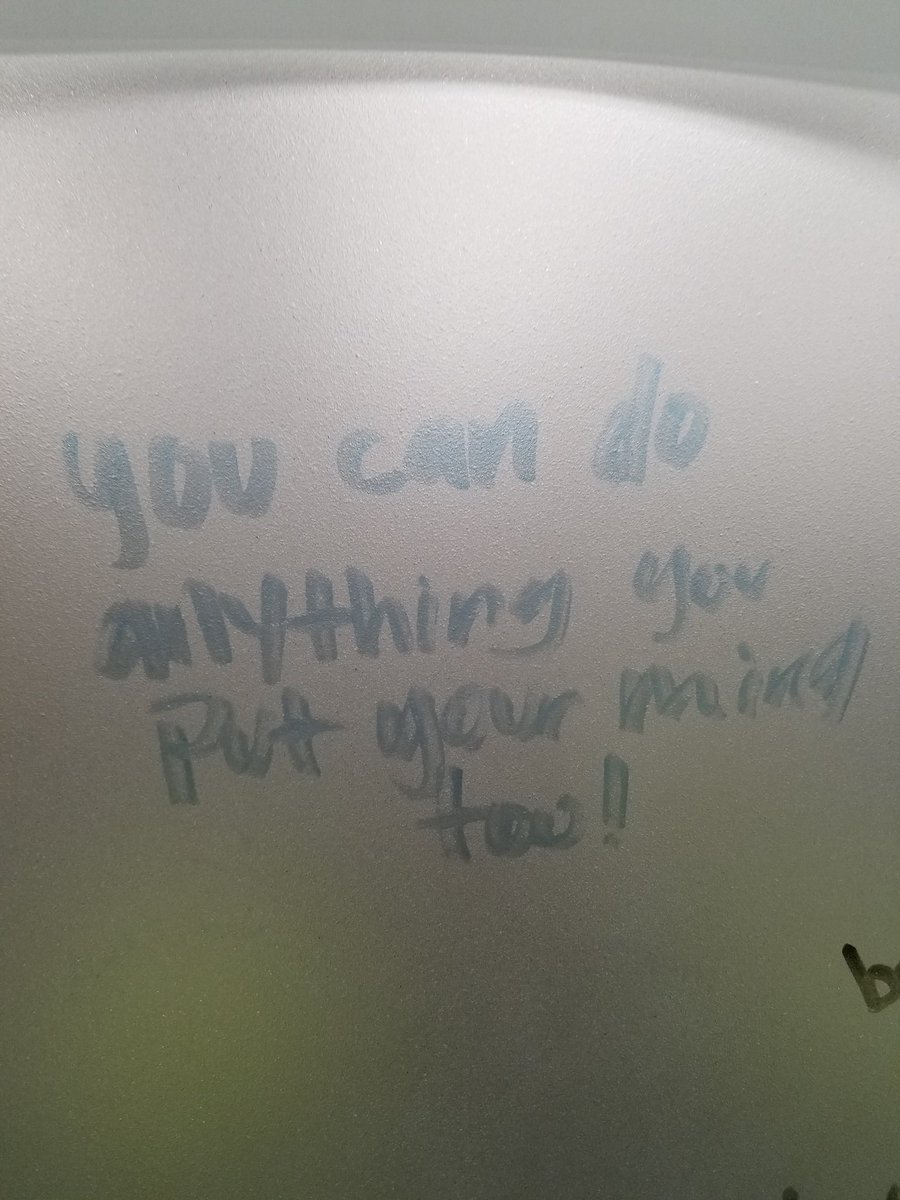 you can do
anything you
Put your mind
too!
b